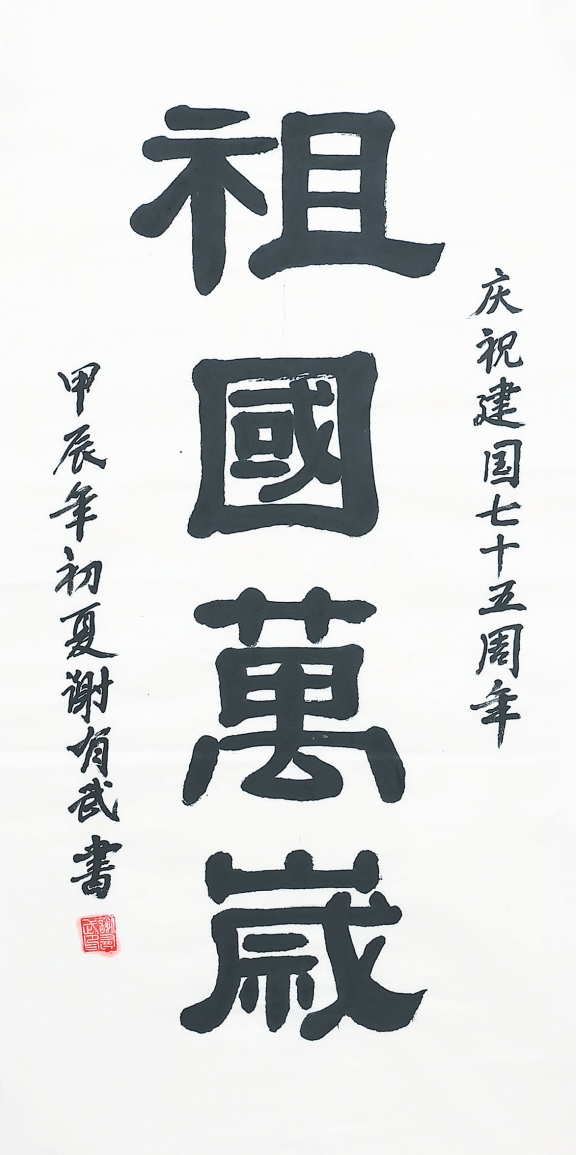 庆祝建国七十五周年
祖國萬歲
甲辰年初夏谢有武書